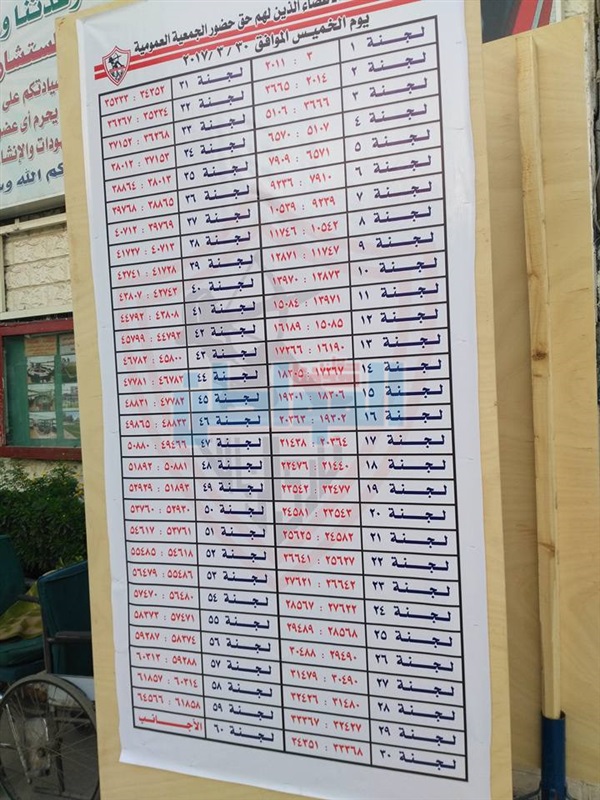 الأعضاء الذين لهم حق حضور الجمعية العمومية
يوم الخميس الموافق ٣٠ / ٣ / ٢٠١٧
لجنة ١ ٣ : ٢٠١١ لجنة ٣١ ٣٤٣٥٢ : ٣٥٢٣٣
لجنة ٢ ٢٠١٤ : ٣٦٦٥ لجنة ٣٢ ٣٥٢٣٤ : ٣٦٢٦٧
لجنة ٣ ٣٦٦٦ : ٥١٠٦ لجنة ٣٣ ٣٦٢٦٨ : ٣٧١٥٢
لجنة ٤ ٥١٠٧ : ٦٥٧٠ لجنة ٣٤ ٣٧١٥٣ : ٣٨٠١٢
لجنة ٥ ٦٥٧١ : ٧٩٠٩ لجنة ٣٥ ٣٨٠١٣ : ٣٨٨٦٤
لجنة ٦ ٧٩١٠ : ٩٢٣٦ لجنة ٣٦ ٣٨٨٦٥ : ٣٩٧٦٨
لجنة ٧ ٩٢٣٩ : ١٠٥٣٩ لجنة ٣٧ ٣٩٧٦٩ : ٤٠٧١٢
لجنة ٨ ١٠٥٤٢ : ١١٧٤٦ لجنة ٣٨ ٤٠٧١٣ : ٤١٧٢٧
لجنة ٩ ١١٧٤٧ : ١٢٨٧١ لجنة ٣٩ ٤١٧٢٨ : ٤٢٧٤١
لجنة ١٠ ١٢٨٧٣ : ١٣٩٧٠ لجنة ٤٠ ٤٢٧٤٢ : ٤٣٨٠٧
لجنة ١١ ١٣٩٧١ : ١٥٠٨٤ لجنة ٤١ ٤٣٨٠٨ : ٤٤٧٩٢
لجنة ١٢ ١٥٠٨٥ : ١٦١٨٩ لجنة ٤٢ ٤٤٧٩٣ : ٤٥٧٩٩
لجنة ١٣ ١٦١٩٠ : ١٧٢٦٦ لجنة ٤٣ ٤٥٨٠٠ : ٤٦٧٨٢
لجنة ١٤ ١٧٢٦٧ : ١٨٣٠٥ لجنة ٤٤ ٤٦٧٨٣ : ٤٧٧٨١
لجنة ١٥ ١٨٣٠٦ : ١٩٣٠١ لجنة ٤٥ ٤٧٧٨٢ : ٤٨٨٣١
لجنة ١٦ ١٩٣٠٢ : ٢٠٣٦٣ لجنة ٤٦ ٤٨٨٣٢ : ٤٩٨٦٥
لجنة ١٧ ٢٠٣٦٤ : ٢١٤٣٨ لجنة ٤٧ ٤٩٤٦٦ : ٥٠٨٨٠
لجنة ١٨ ٢١٤٤٠ : ٢٢٤٧٦ لجنة ٤٨ ٥٠٨٨١ : ٥١٨٩٢
لجنة ١٩ ٢٢٤٧٧ : ٢٣٥٤٢ لجنة ٤٩ ٥١٨٩٣ : ٥٢٩٢٩
لجنة ٢٠ ٢٣٥٤٣ : ٢٤٥٨١ لجنة ٥٠ ٥٢٩٣٠ : ٥٣٧٦٠
لجنة ٢١ ٢٤٥٨٢ : ٢٥٦٢٥ لجنة ٥١ ٥٣٧٦١ : ٥٤٦١٧
لجنة ٢٢ ٢٥٦٢٧ : ٢٦٦٤١ لجنة ٥٢ ٥٤٦١٨ : ٥٥٤٨٥
لجنة ٢٣ ٢٦٦٤٢ : ٢٧٦٢١ لجنة ٥٣ ٥٥٤٨٦ : ٥٦٤٧٩
لجنة ٢٤ ٢٧٦٢٢ : ٢٨٥٦٧ لجنة ٥٤ ٥٦٤٨٠ : ٥٧٤٧٠
لجنة ٢٥ ٢٨٥٦٨ : ٢٩٤٨٩ لجنة ٥٥ ٥٧٤٧١ : ٥٨٣٧٣
لجنة ٢٦ ٢٩٤٩٠ : ٣٠٤٨٨ لجنة ٥٦ ٥٨٣٧٤ : ٥٩٢٨٧
لجنة ٢٧ ٣٠٤٩٠ : ٣١٤٧٩ لجنة ٥٧ ٥٩٢٨٨ : ٦٠٣١٣
لجنة ٢٨ ٣١٤٨٠ : ٣٢٤٢٦ لجنة ٥٨ ٦٠٣١٤ : ٦١٨٥٧
لجنة ٢٩ ٣٢٤٢٧ : ٣٣٣٦٧ لجنة ٥٩ ٦١٨٥٨ : ٦٤٥٦٦
لجنة ٣٠ ٣٣٣٦٨ : ٣٤٣٥١ لجنة ٦٠ الأجانب
سيادتكم على
يجرم أي عضو
كم الله